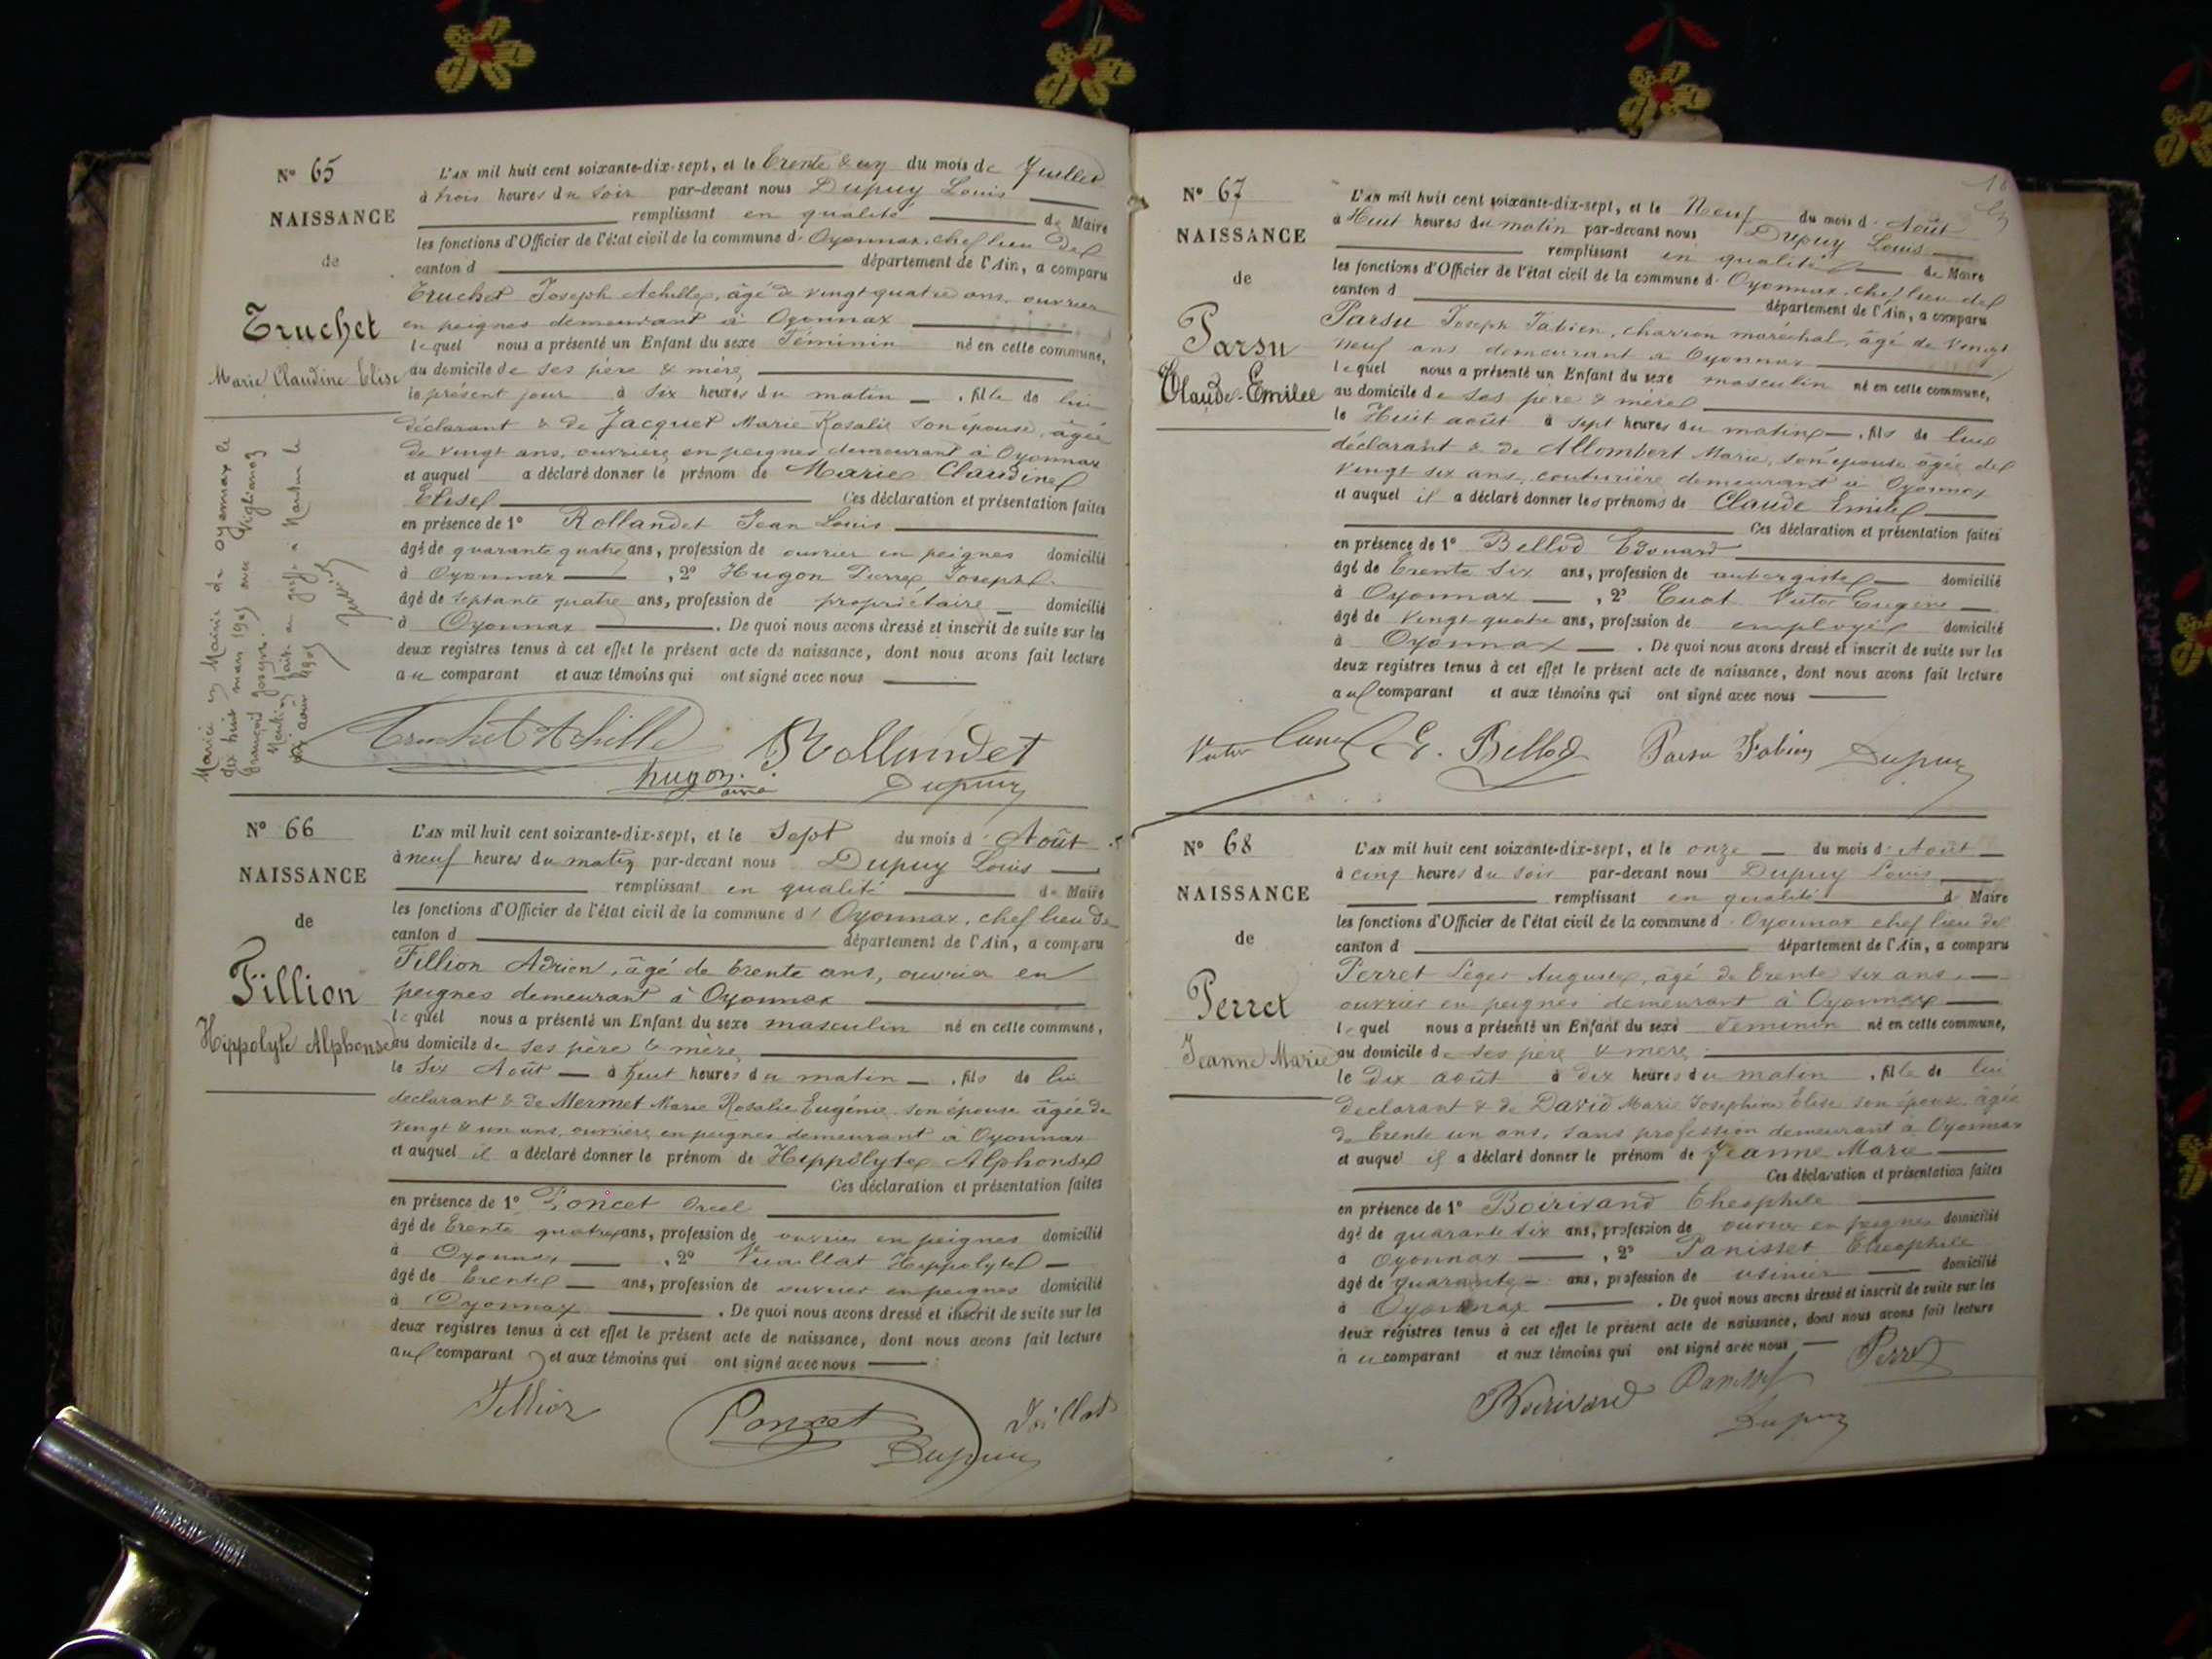 N° 65
NAISSANCE
de
Truchet
Marie Claudine Elise
Marié en Mairie de Oyonnax le
dix huit mars 1905 avec Viglianoz
François Joseph.
Mention faite au greffe à Nantua le
août 1905
L'an mil huit cent soixante-dix-sept, et le trente & un du mois de Juillet
à trois heures du soir par-devant nous Dupuy Louis
remplissant en qualité de Maire
les fonctions d'Officier de l'état civil de la commune d' Oyonnax, chef lieu de
canton d département de l'Ain, a comparu
Truchet Joseph Achille, âgé de vingt quatre ans, ouvrier
en peignes demeurant à Oyonnax
lequel nous a présenté un Enfant du sexe Féminin né en cette commune,
au domicile de ses père & mère,
le présent jour à six heures du matin , fille de lui
déclarant & de Jacquet Marie Rosalie son épouse, âgée
de vingt ans, ouvrière en peignes demeurant à Oyonnax
et auquel a déclaré donner le prénom de Marie Claudine
Elise Ces déclaration et présentation faites
en présence de 1° Rollandet Jean Louis
âgé de quarante quatre ans, profession de ouvrier en peignes domicilié
à Oyonnax , 2° Hugon Pierre Joseph
âgé de septante quatre ans, profession de propriétaire domicilié
à Oyonnax . De quoi nous avons dressé et inscrit de suite sur les
deux registres tenus à cet effet le présent acte de naissance, dont nous avons fait lecture
au comparant et aux témoins qui ont signé avec nous
Truchet Achille Rollandet
hugon ainé Dupuy
N° 66
NAISSANCE
de
Fillion
Hippolyte Alphonse
L'an mil huit cent soixante-dix-sept, et le sept du mois d' Août
à neuf heures du matin par-devant nous Dupuy Louis
remplissant en qualité de Maire
les fonctions d'Officier de l'état civil de la commune d' Oyonnax, chef lieu de
canton d département de l'Ain, a comparu
Fillion Adrien, âgé de trente ans, ouvrier en
peignes demeurant à Oyonnax
lequel nous a présenté un Enfant du sexe masculin né en cette commune,
au domicile de ses père & mère,
le six Août à huit heures du matin , fils de lui
déclarant & de Mermet Marie Rosalie Eugénie son épouse âgée de
vingt & un ans, ouvrière en peignes demeurant à Oyonnax
et auquel il a déclaré donner le prénom de Hippolyte Alphonse
Ces déclaration et présentation faites
en présence de 1° Poncet Oreel
âgé de trente quatre ans, profession de ouvrier en peignes domicilié
à Oyonnax , 2° Vuaillat Hippolyte
âgé de trente ans, profession de ouvrier en peignes domicilié
à Oyonnax . De quoi nous avons dressé et inscrit de suite sur les
deux registres tenus à cet effet le présent acte de naissance, dont nous avons fait lecture
au comparant et aux témoins qui ont signé avec nous
Fillion Poncet
Dupuy
N° 67
NAISSANCE
de
Parsu
Claude-Emile
L'an mil huit cent soixante-dix-sept, et le Neuf du mois d' Août
à Huit heures du matin par-devant nous Dupuy Louis
remplissant en qualité de Maire
les fonctions d'Officier de l'état civil de la commune d' Oyonnax, chef lieu de
canton d département de l'Ain, a comparu
Parsu Joseph Fabien, charron maréchal, âgé de vingt
neuf ans demeurant à Oyonnax
lequel nous a présenté un Enfant du sexe masculin né en cette commune,
au domicile de ses père & mère
le Huit août à sept heures du matin , fils de lui
déclarant & de Allombert Marie, son épouse âgée de
vingt six ans, couturière demeurant à Oyonnax
et auquel il a déclaré donner les prénoms de Claude Emile
Ces déclaration et présentation faites
en présence de 1° Bellod Edouard
âgé de trente six ans, profession de aubergiste domicilié
à Oyonnax , 2° Cuot Victor Eugène
âgé de vingt quatre ans, profession de employé domicilié
à Oyonnax . De quoi nous avons dressé et inscrit de suite sur les
deux registres tenus à cet effet le présent acte de naissance, dont nous avons fait lecture
au comparant et aux témoins qui ont signé avec nous
Victor E. Bellod Parsu Fabien Dupuy
N° 68
NAISSANCE
de
Perret
Jeanne Marie
L'an mil huit cent soixante-dix-sept, et le onze du mois d' Août
à cinq heures du soir par-devant nous Dupuy Louis
remplissant en qualité de Maire
les fonctions d'Officier de l'état civil de la commune d' Oyonnax chef lieu de
canton d département de l'Ain, a comparu
Perret Leger Auguste, âgé de trente six ans,
ouvrier en peignes demeurant à Oyonnax
lequel nous a présenté un Enfant du sexe Féminin né en cette commune,
au domicile de ses père & mère
le dix août à dix heures du matin , fille de lui
déclarant & de David Marie Josephine Elise son épouse âgée
de trente un ans, sans profession demeurant à Oyonnax
et auquel il a déclaré donner le prénom de Jeanne Marie
Ces déclaration et présentation faites
en présence de 1° Boirivand Théophile
âgé de quarante six ans, profession de ouvrier en peignes domicilié
à Oyonnax , 2° Panisset Théophile
âgé de quarante ans, profession de usinier domicilié
à Oyonnax . De quoi nous avons dressé et inscrit de suite sur les
deux registres tenus à cet effet le présent acte de naissance, dont nous avons fait lecture
au comparant et aux témoins qui ont signé avec nous
Boirivand Panisset Perret
Dupuy